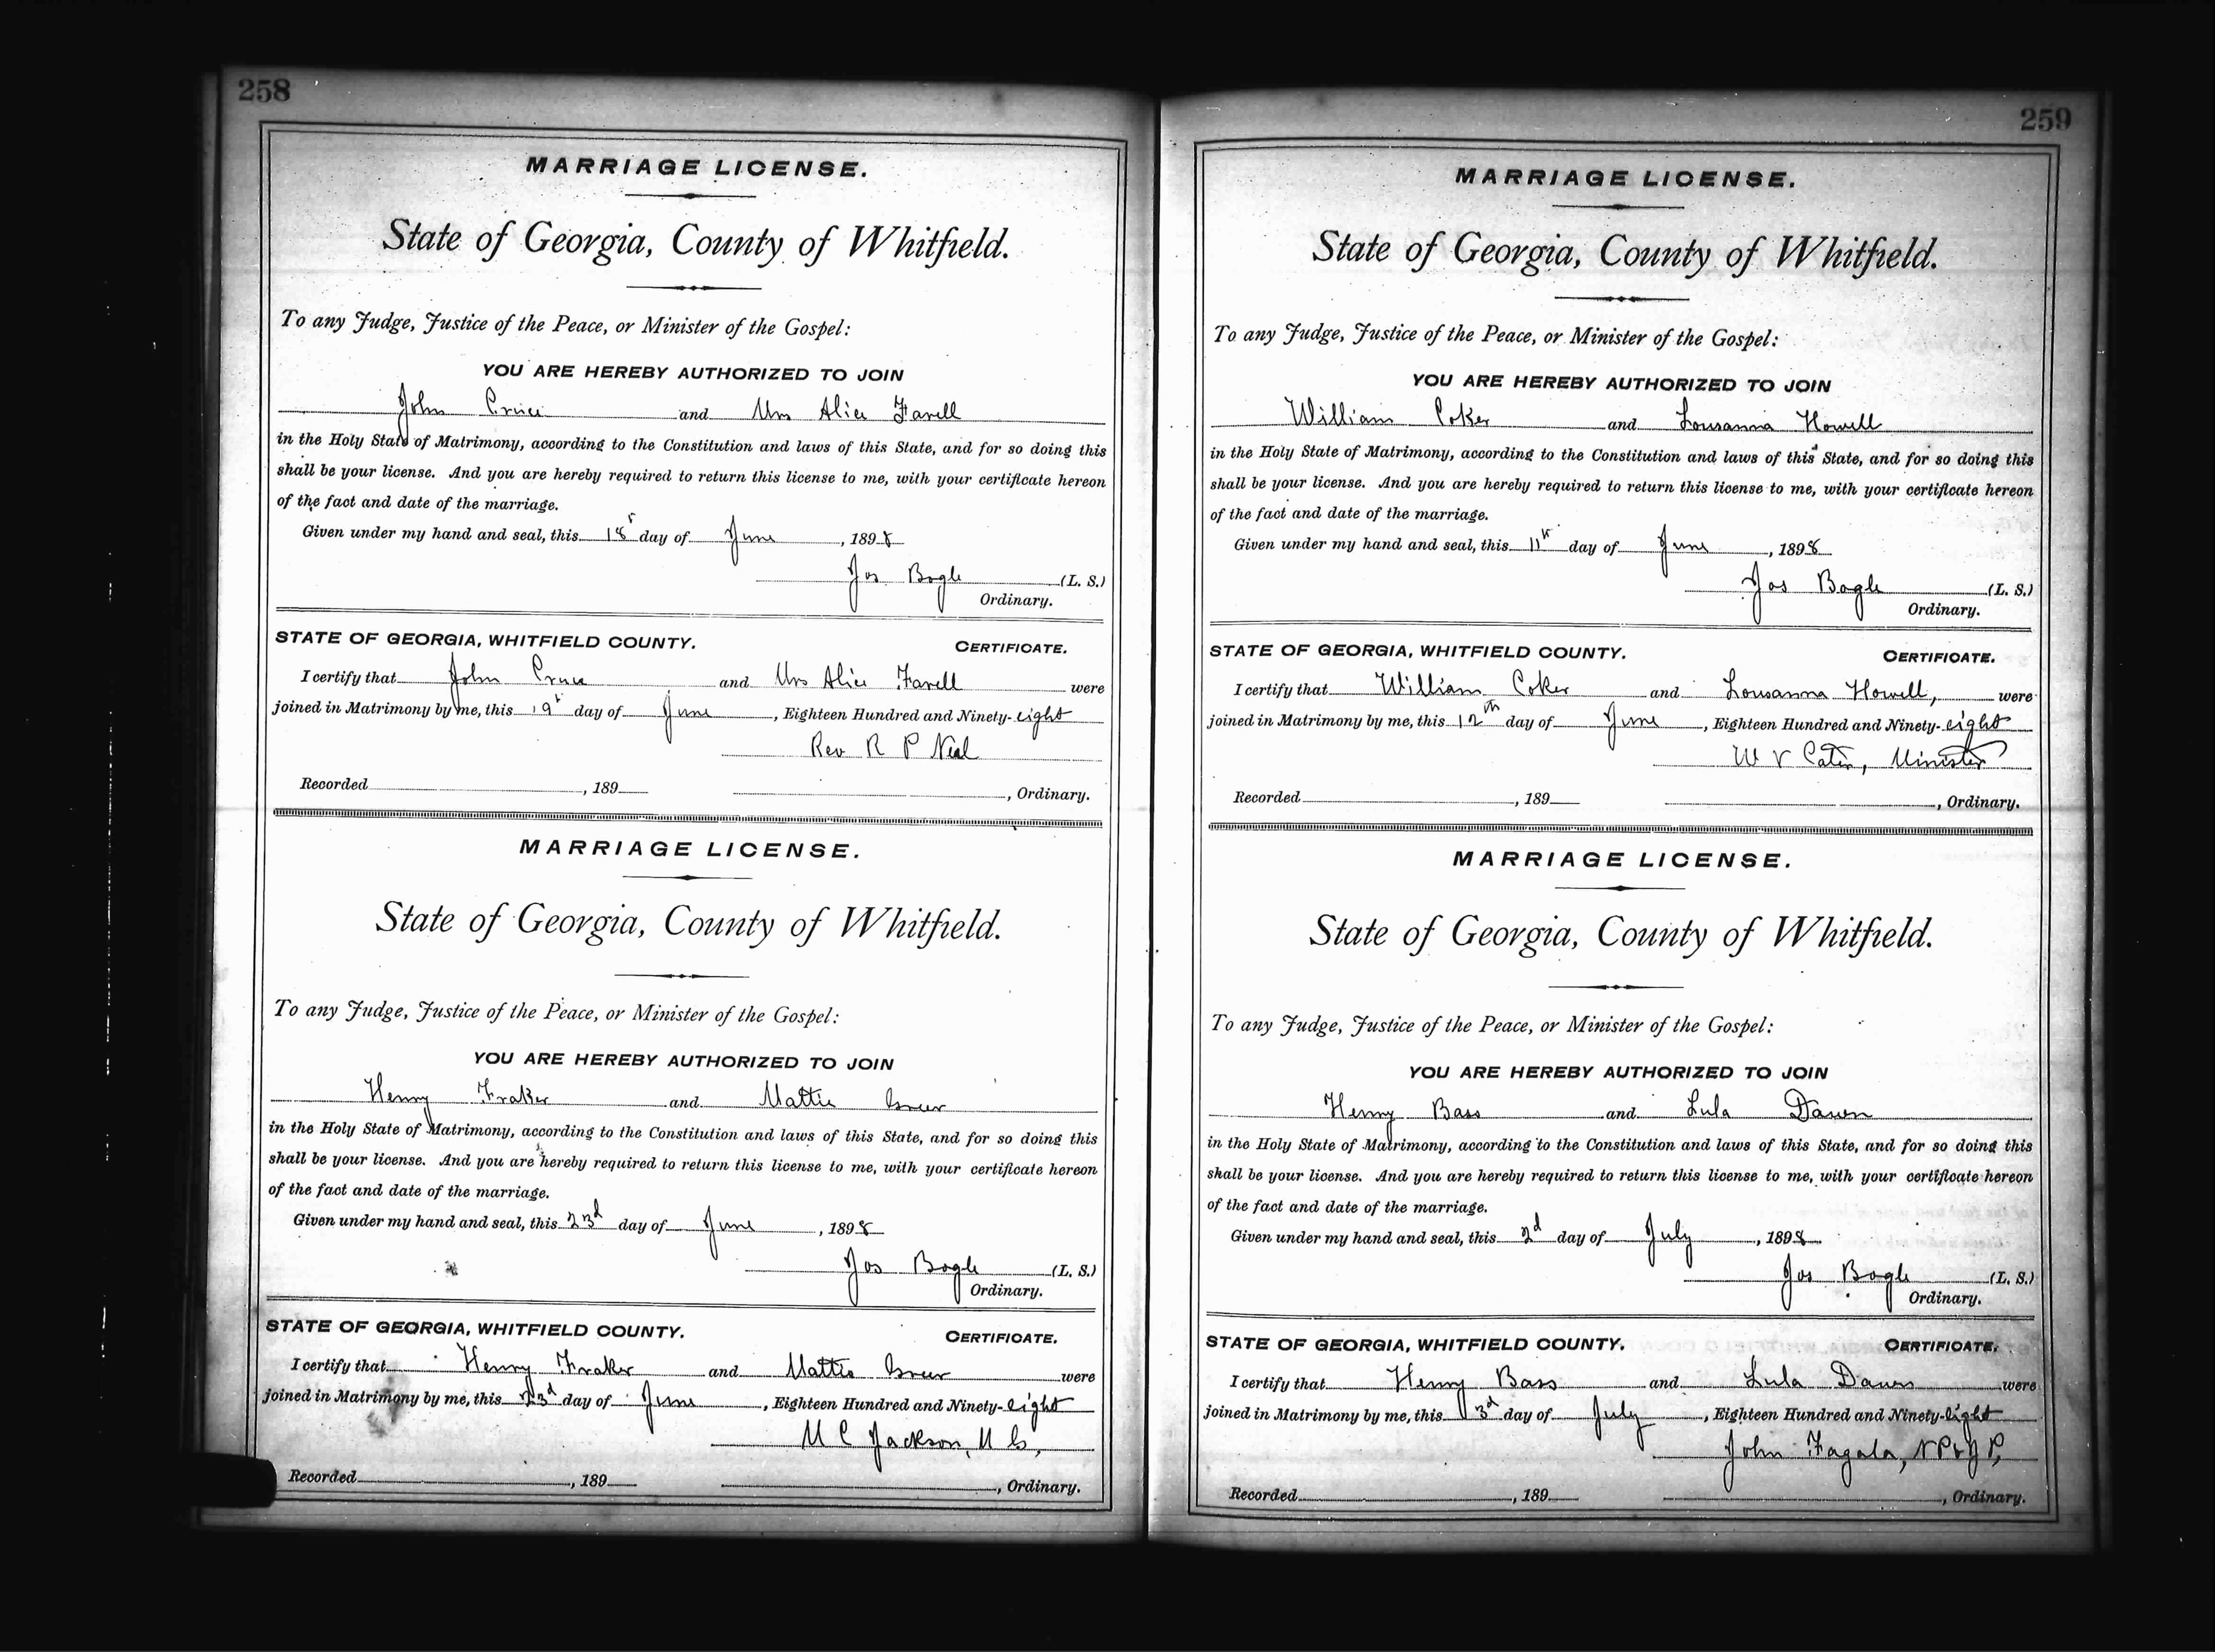 258
MARRIAGE LICENSE.
State of Georgia, County of Whitfield.
To any Judge, Justice of the Peace, or Minister of the Gospel:
YOU ARE HEREBY AUTHORIZED TO JOIN
John and Mrs Alice Farell
in the Holy State of Matrimony, according to the Constitution and laws of this State, and for so doing this
shall be your license. And you are hereby required to return this license to me, with your certificate hereon
of the fact and date of the marriage.
Given under my hand and seal, this 18 day of June, 1898
Jos Bogle (L. S.)
Ordinary.
STATE OF GEORGIA, WHITFIELD COUNTY. CERTIFICATE.
I certify that John and Mrs Alice Farell were
joined in Matrimony by me, this 19 day of June, Eighteen Hundred and Ninety-eight
Rev R P Neal
Recorded , 189 , Ordinary.
MARRIAGE LICENSE.
State of Georgia, County of Whitfield.
To any Judge, Justice of the Peace, or Minister of the Gospel:
YOU ARE HEREBY AUTHORIZED TO JOIN
Henry Fraker and Mattie
in the Holy State of Matrimony, according to the Constitution and laws of this State, and for so doing this
shall be your license. And you are hereby required to return this license to me, with your certificate hereon
of the fact and date of the marriage.
Given under my hand and seal, this 23d day of June, 1898
Jos Bogle (L. S.)
Ordinary.
STATE OF GEORGIA, WHITFIELD COUNTY. CERTIFICATE.
I certify that Henry Fraker and Mattie were
joined in Matrimony by me, this 23d day of June, Eighteen Hundred and Ninety-eight
M C Jackson, M G,
Recorded , 189 , Ordinary.
259
MARRIAGE LICENSE.
State of Georgia, County of Whitfield.
To any Judge, Justice of the Peace, or Minister of the Gospel:
YOU ARE HEREBY AUTHORIZED TO JOIN
William Coker and Lousanna Howell
in the Holy State of Matrimony, according to the Constitution and laws of this State, and for so doing this
shall be your license. And you are hereby required to return this license to me, with your certificate hereon
of the fact and date of the marriage.
Given under my hand and seal, this 11th day of June, 1898
Jos Bogle (L. S.)
Ordinary.
STATE OF GEORGIA, WHITFIELD COUNTY. CERTIFICATE.
I certify that William Coker and Lousanna Howell, were
joined in Matrimony by me, this 12th day of June, Eighteen Hundred and Ninety-eight
W V Cater, Minister
Recorded , 189 , Ordinary.
MARRIAGE LICENSE.
State of Georgia, County of Whitfield.
To any Judge, Justice of the Peace, or Minister of the Gospel:
YOU ARE HEREBY AUTHORIZED TO JOIN
Henry Bass and Lula
in the Holy State of Matrimony, according to the Constitution and laws of this State, and for so doing this
shall be your license. And you are hereby required to return this license to me, with your certificate hereon
of the fact and date of the marriage.
Given under my hand and seal, this 2d day of July, 1898
Jos Bogle (L. S.)
Ordinary.
STATE OF GEORGIA, WHITFIELD COUNTY. CERTIFICATE.
I certify that Henry Bass and Lula were
joined in Matrimony by me, this 3d day of July, Eighteen Hundred and Ninety-eight
John Fagala, NP&JP,
Recorded , 189 , Ordinary.